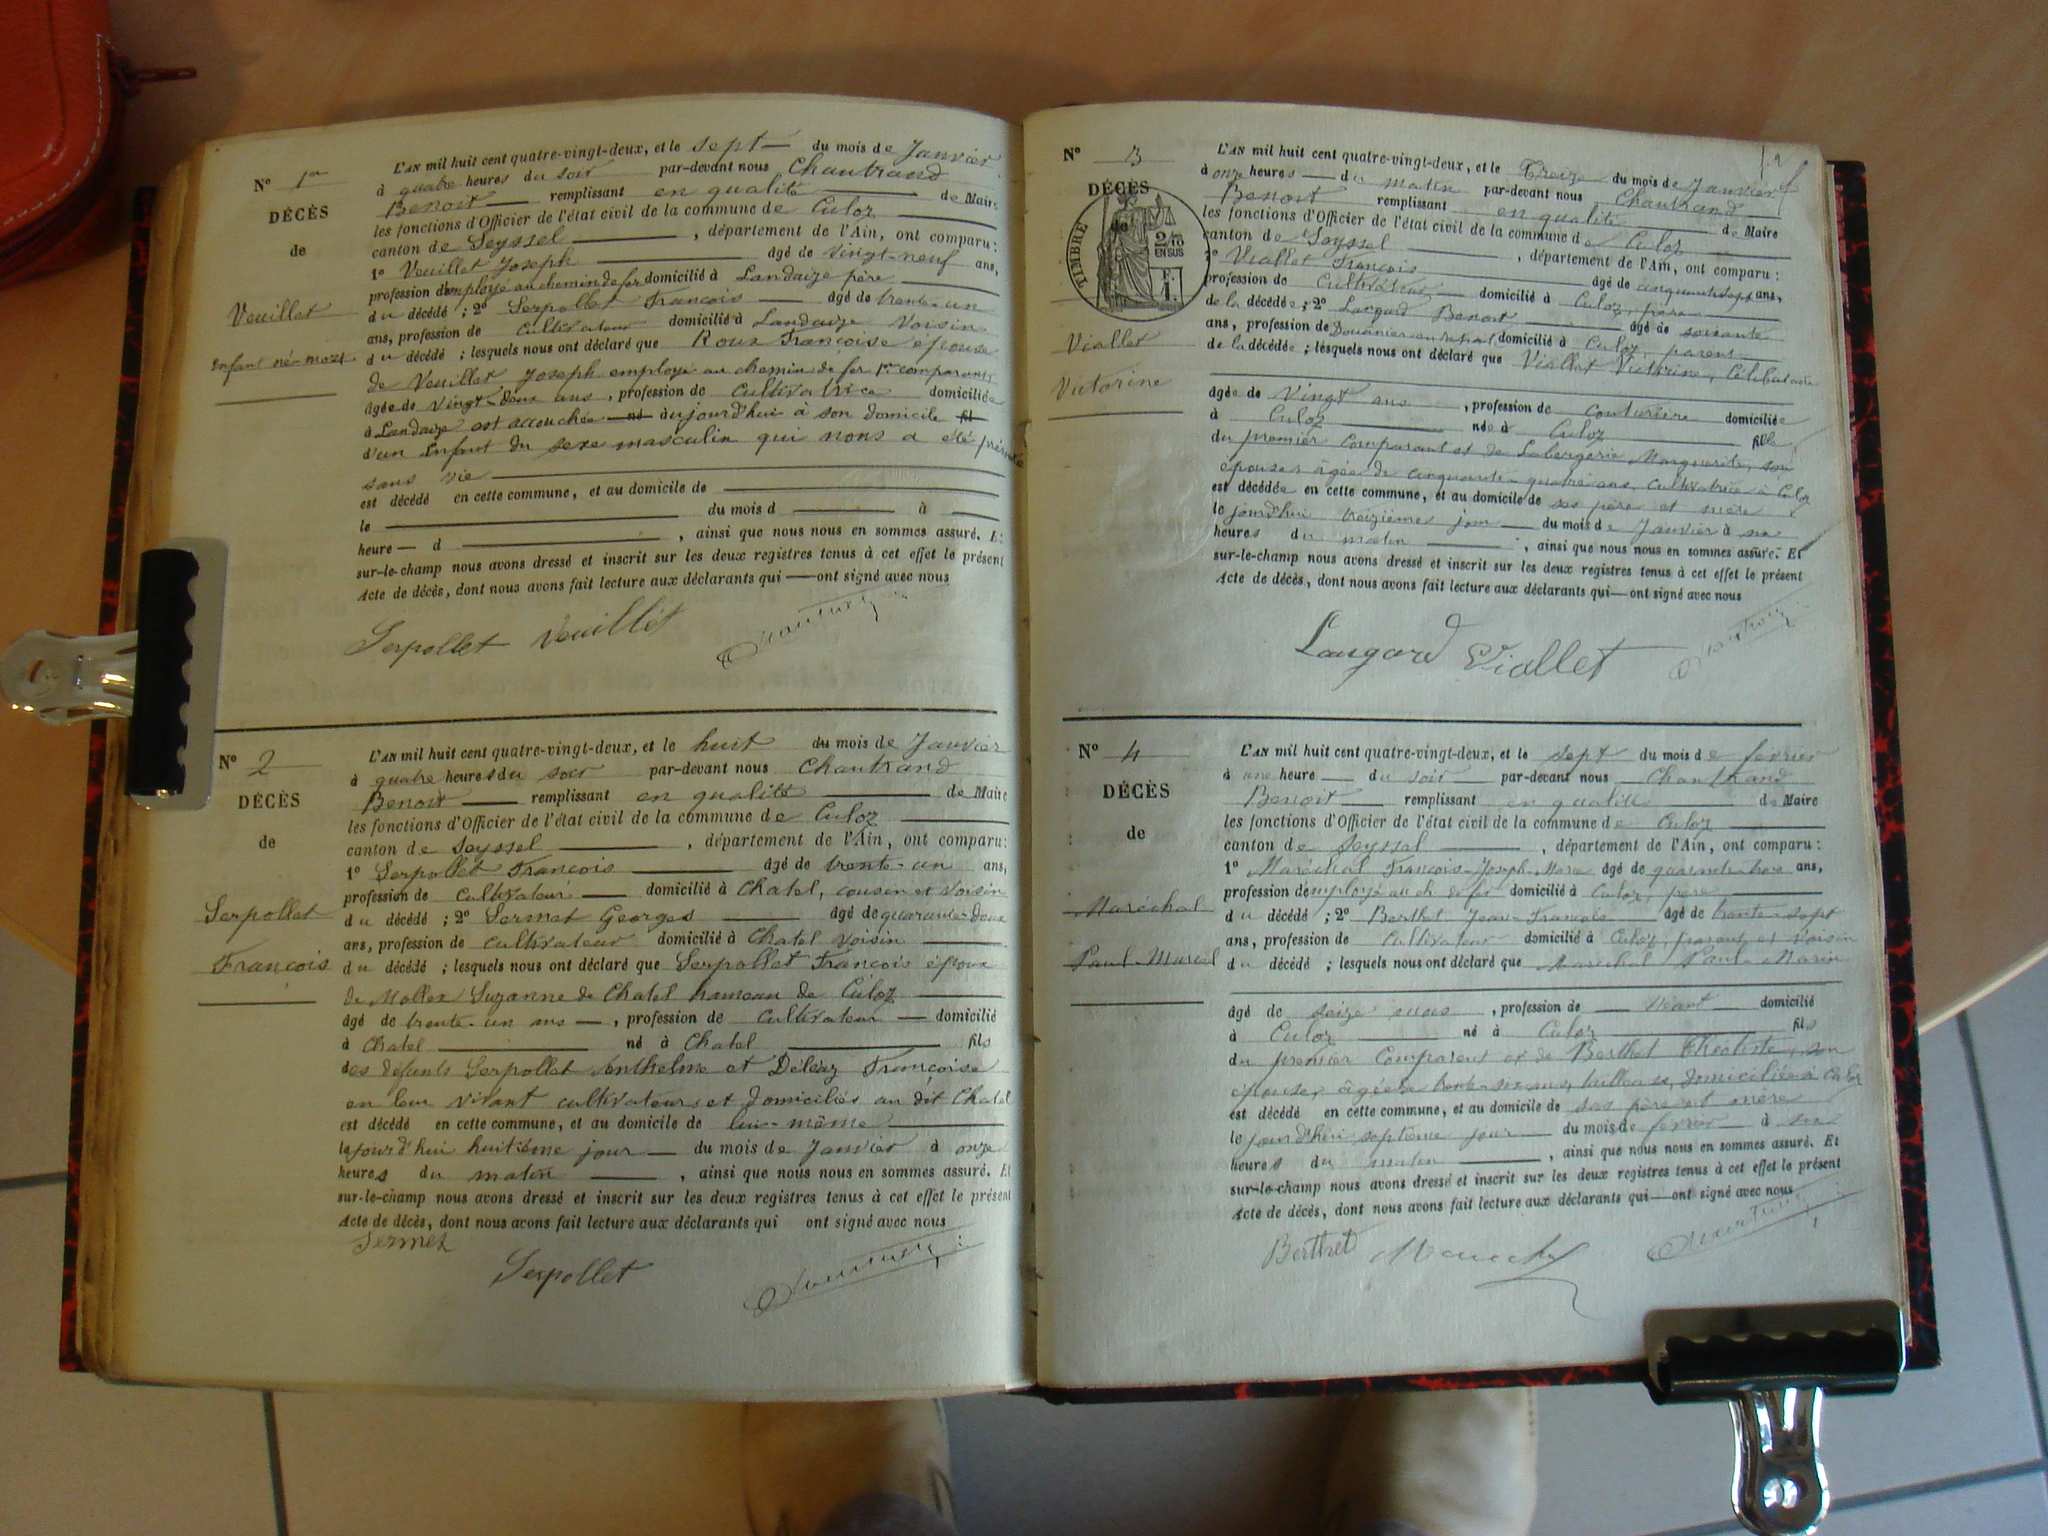 N° 1er
DÉCÈS
de
Veuillet
Enfant né-mort
L'AN mil huit cent quatre-vingt-deux, et le sept du mois de Janvier
à quatre heures du soir par-devant nous Chautrand
Benoit remplissant en qualité de Maire
les fonctions d'Officier de l'état civil de la commune de Culoz
canton de Seyssel, département de l'Ain, ont comparu :
1° Veuillet Joseph âgé de vingt-neuf ans,
profession d'employé au chemin de fer domicilié à Landaize père
du décédé ; 2° Serpollet François âgé de trente-un
ans, profession de cultivateur domicilié à Landaize voisin
du décédé ; lesquels nous ont déclaré que Roux Françoise épouse
de Veuillet Joseph employé au chemin de fer 1er comparant
âgée de vingt-deux ans, profession de cultivatrice domiciliée
à Landaize est accouchée né aujourd'hui à son domicile fil
d'un Enfant du sexe masculin qui nous a été présenté
sans vie
est décédé en cette commune, et au domicile de
le du mois d à
heure d , ainsi que nous nous en sommes assuré. Et
sur-le-champ nous avons dressé et inscrit sur les deux registres tenus à cet effet le présent
Acte de décès, dont nous avons fait lecture aux déclarants qui ont signé avec nous
Serpollet Veuillet
N° 2
DÉCÈS
de
Serpollet
François
L'AN mil huit cent quatre-vingt-deux, et le huit du mois de Janvier
à quatre heures du soir par-devant nous Chautrand
Benoit remplissant en qualité de Maire
les fonctions d'Officier de l'état civil de la commune de Culoz
canton de Seyssel, département de l'Ain, ont comparu :
1° Serpollet François âgé de trente-un ans,
profession de cultivateur domicilié à Chatel, cousin et voisin
du décédé ; 2° Sermet Georges âgé de quarante-deux
ans, profession de cultivateur domicilié à Chatel voisin
du décédé ; lesquels nous ont déclaré que Serpollet François époux
de Mollex Suzanne de Chatel hameau de Culoz
âgé de trente-un ans, profession de cultivateur domicilié
à Chatel né à Chatel fils
des défunts Serpollet Anthelme et Déléaz Françoise
en leur vivant cultivateurs et domiciliés au dit Chatel
est décédé en cette commune, et au domicile de lui-même
le jourd'hui huitième jour du mois de Janvier à onze
heures du matin, ainsi que nous nous en sommes assuré. Et
sur-le-champ nous avons dressé et inscrit sur les deux registres tenus à cet effet le présent
Acte de décès, dont nous avons fait lecture aux déclarants qui ont signé avec nous
Sermet
Serpollet
N° 3
DÉCÈS
de
TIMBRE
2/10
EN SUS
Viallet
Victorine
L'AN mil huit cent quatre-vingt-deux, et le Treize du mois de Janvier
à onze heures du matin par-devant nous Chautrand
Benoit remplissant en qualité de Maire
les fonctions d'Officier de l'état civil de la commune de Culoz
canton de Seyssel, département de l'Ain, ont comparu :
1° Viallet François âgé de cinquante sept ans,
profession de cultivateur domicilié à Culoz, père
de la décédée ; 2° Benoit âgé de soixante
ans, profession de Douanier en retraite domicilié à Culoz, parent
de la décédée ; lesquels nous ont déclaré que Viallet Victorine, Célibataire
âgée de vingt ans, profession de couturière domiciliée
à Culoz née à Culoz fille
du premier Comparant et de Labergerie Marguerite, son
épouse, âgée de cinquante-quatre ans, cultivatrice à Culoz
est décédée en cette commune, et au domicile de ses père et mère
le jourd'hui treizième jour du mois de Janvier à six
heures du matin, ainsi que nous nous en sommes assuré. Et
sur-le-champ nous avons dressé et inscrit sur les deux registres tenus à cet effet le présent
Acte de décès, dont nous avons fait lecture aux déclarants qui ont signé avec nous
Viallet
N° 4
DÉCÈS
de
Maréchal
Paul-Marcel
L'AN mil huit cent quatre-vingt-deux, et le sept du mois de février
à une heure du soir par-devant nous Chautrand
Benoit remplissant en qualité de Maire
les fonctions d'Officier de l'état civil de la commune de Culoz
canton de Seyssel, département de l'Ain, ont comparu :
1° Maréchal François-Joseph-Marie âgé de quarante-trois ans,
profession d'employé au ch. de fer domicilié à Culoz, père
du décédé ; 2° Berthet Jean-François âgé de trente-sept
ans, profession de cultivateur domicilié à Culoz, parent et voisin
du décédé ; lesquels nous ont déclaré que Maréchal Paul-
âgé de seize mois, profession de néant domicilié
à Culoz né à Culoz fils
du premier Comparant et de Berthet Théotiste, son
épouse, âgée de trente-six ans, tailleuse, domiciliée à Culoz
est décédé en cette commune, et au domicile de ses père et mère
le jourd'hui septième jour du mois de février à six
heures du matin, ainsi que nous nous en sommes assuré. Et
sur-le-champ nous avons dressé et inscrit sur les deux registres tenus à cet effet le présent
Acte de décès, dont nous avons fait lecture aux déclarants qui ont signé avec nous
Berthet